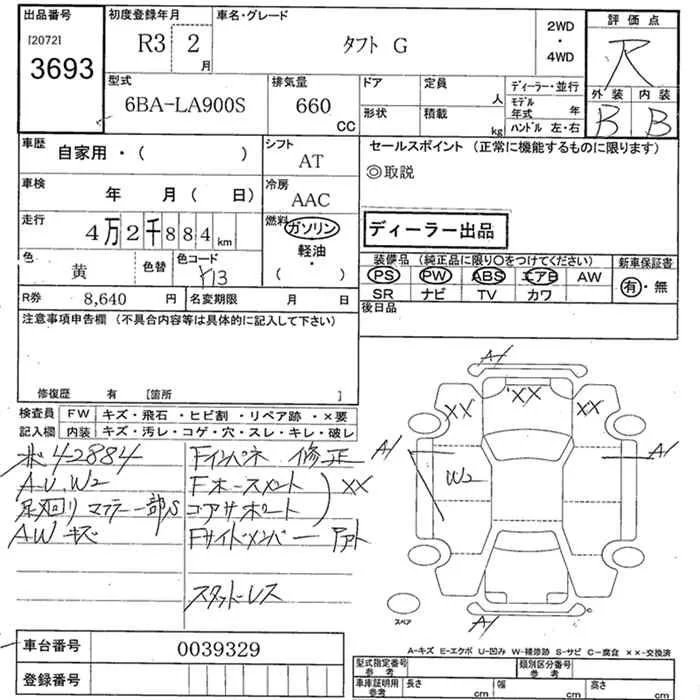 出品番号
[2072]
3693
初度登録年月
R3 2
月
車名・グレード
タフト G
2WD
・
4WD
評価点
R
外装 内装
B B
型式
6BA-LA900S
排気量
660
CC
ドア 定員
人
形状 積載
kg
ディーラー・並行
モデル年式 年
ハンドル 左・右
車歴 自家用・( )
シフト
AT
車検 年 月( 日)
冷房
AAC
走行 4万2千884km
燃料
ガソリン
軽油
( ・ )
色 黄 色替
色コード
Y13
R券 8,640 円 名変期限 月 日
セールスポイント (正常に機能するものに限ります)
◎取説
ディーラー出品
装備品 (純正品に限り○をつけてください)
PS PW ABS エアB AW
SR ナビ TV カワ
新車保証書
有・無
後日品
注意事項申告欄 (不具合内容等は具体的に記入して下さい)
修復歴 有 [箇所 ]
検査員記入欄
FW キズ・飛石・ヒビ割・リペア跡・×要
内装 キズ・汚レ・コゲ・穴・スレ・キレ・破レ
42884
A.U.W2
足廻り マフラー一部S
AWキズ
Fインパネ 修正
Fホースメント
コアサポート
XX
Fサイドメンバー
スタットレス
A1
XX
XX
XX
A1
W2
A1
A1
スペア
A-キズ E-エクボ U-凹み W-補修跡 S-サビ C-腐食 ××-交換済
車台番号 0039329
登録番号
型式指定番号
参考
類別区分番号
参考
車庫証明用
参考
長さ cm 幅 cm 高さ cm